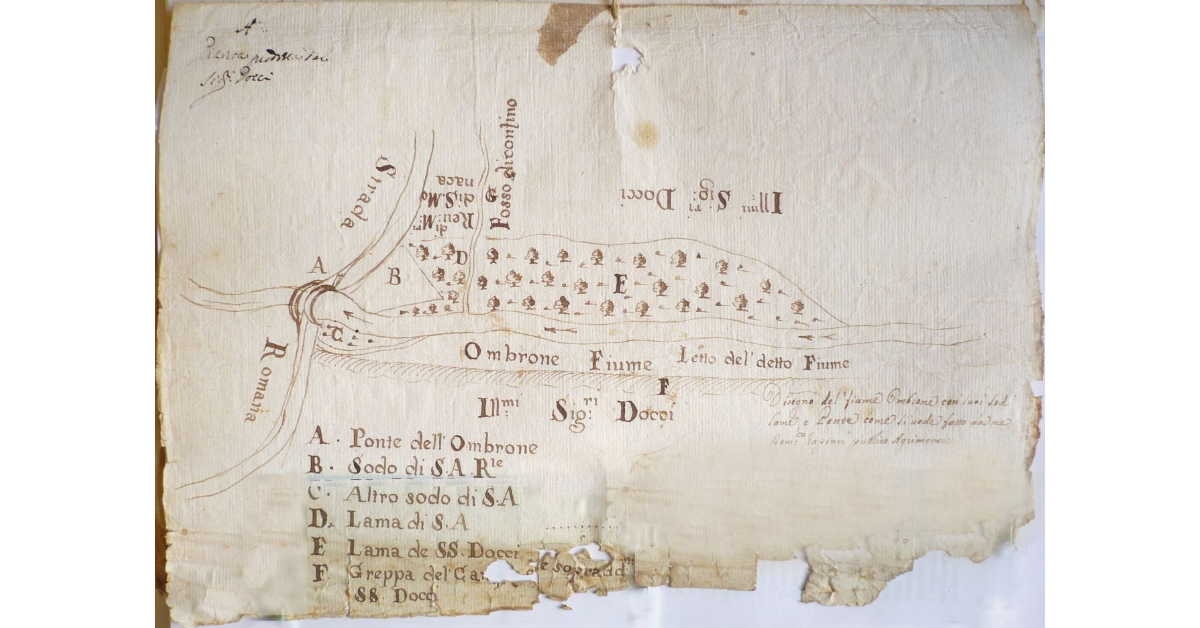 A
Pianta prodotta dai
Sigri Docci
Strada
Romana
A
B
C
D
E
F
G
Fosso di confino
Reu: Mri
di S. Mo
naca
Illmi Sigri Docci
Ombrone Fiume Letto del' detto Fiume
Illmi Sigri Docci
Disegno del fiume Ombrone con suoi sodi
lame e Ponte come si vede fatto da me
publico Agrimensore
A. Ponte dell'Ombrone
B. Sodo di S.A.Rle
C. Altro sodo di S.A
D. Lama di S.A
E Lama de SS. Docci
F Greppa del Ca de sopradd
SS. Docci